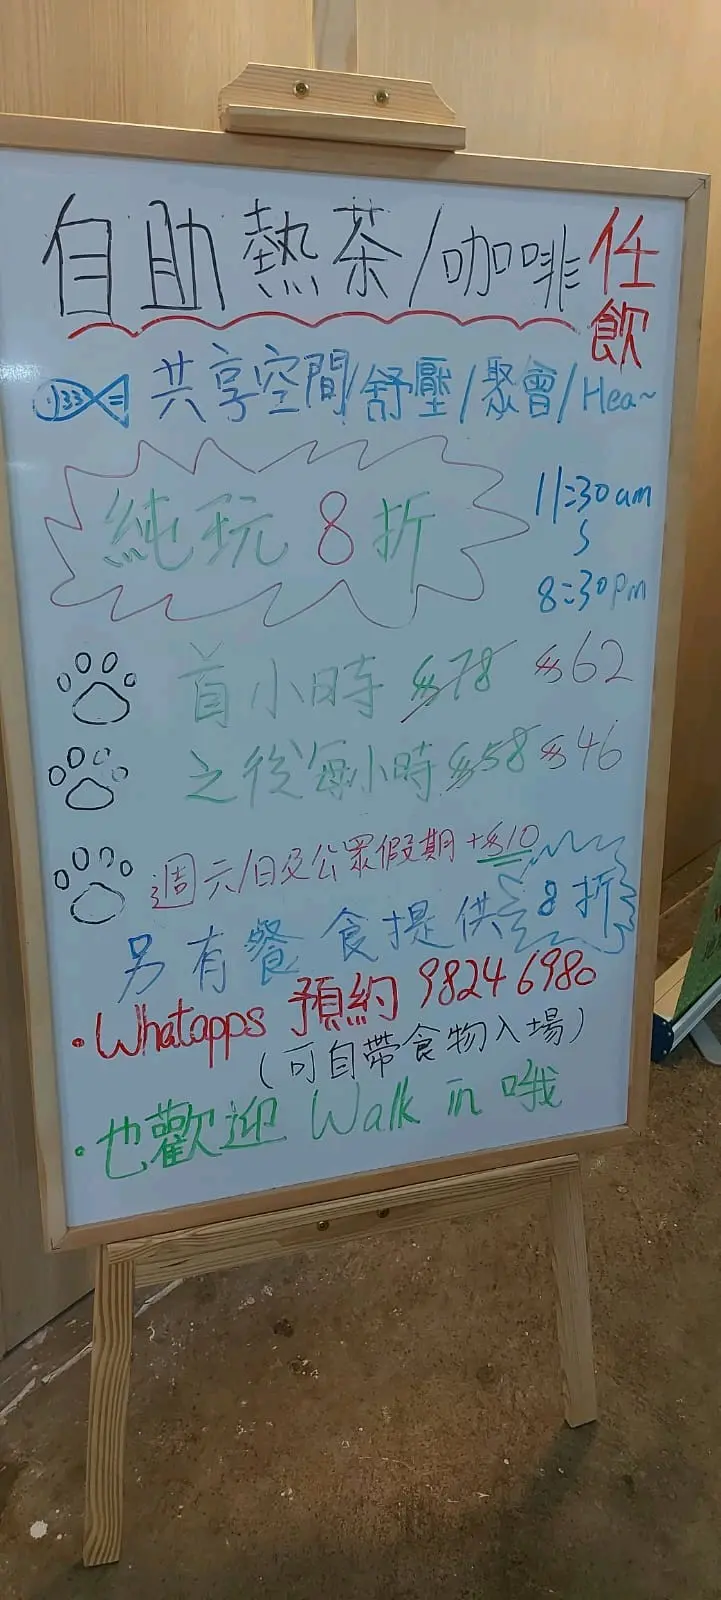 自助熱茶/咖啡任飲
共享空間/舒壓/聚會/Hea~
純玩8折
11:30am
8:30pm
首小時 $78 $62
之後每小時 $58 $46
週六/日及公眾假期 +$10
另有餐食提供 8折
·Whatapps 預約 98246980
(可自帶食物入場)
·也歡迎 Walk in 哦